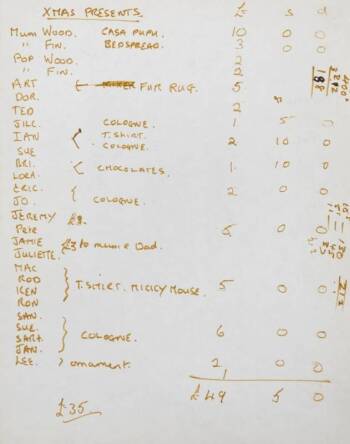 XMAS PRESENTS. £ s d
MUM WOOD. CASA PUPU. 10 0 0
" FIN. BEDSPREAD. 3 0 0
POP WOOD. 2
" FIN. 2
ART FUR RUG. 5
DOR.
TED 2
JILL. COLOGNE. 1 5 0
IAN T. SHIRT. 2 10 0
SUE COLOGNE.
BRI. CHOCOLATES. 1 10 0
LORA.
ERIC. 2 0 0
JO. COLOGNE.
JEREMY £3.
PETE 0 0
JAMIE £3 to mum & Dad.
JULIETTE.
MAC
ROD T. SHIRT. MICKY MOUSE. 5 0 0
KEN
RON
SAN.
SUE. COLOGNE. 6 0 0
SARA.
JAN.
LEE. ornament. 2 0 0
£49 5 0
£35.